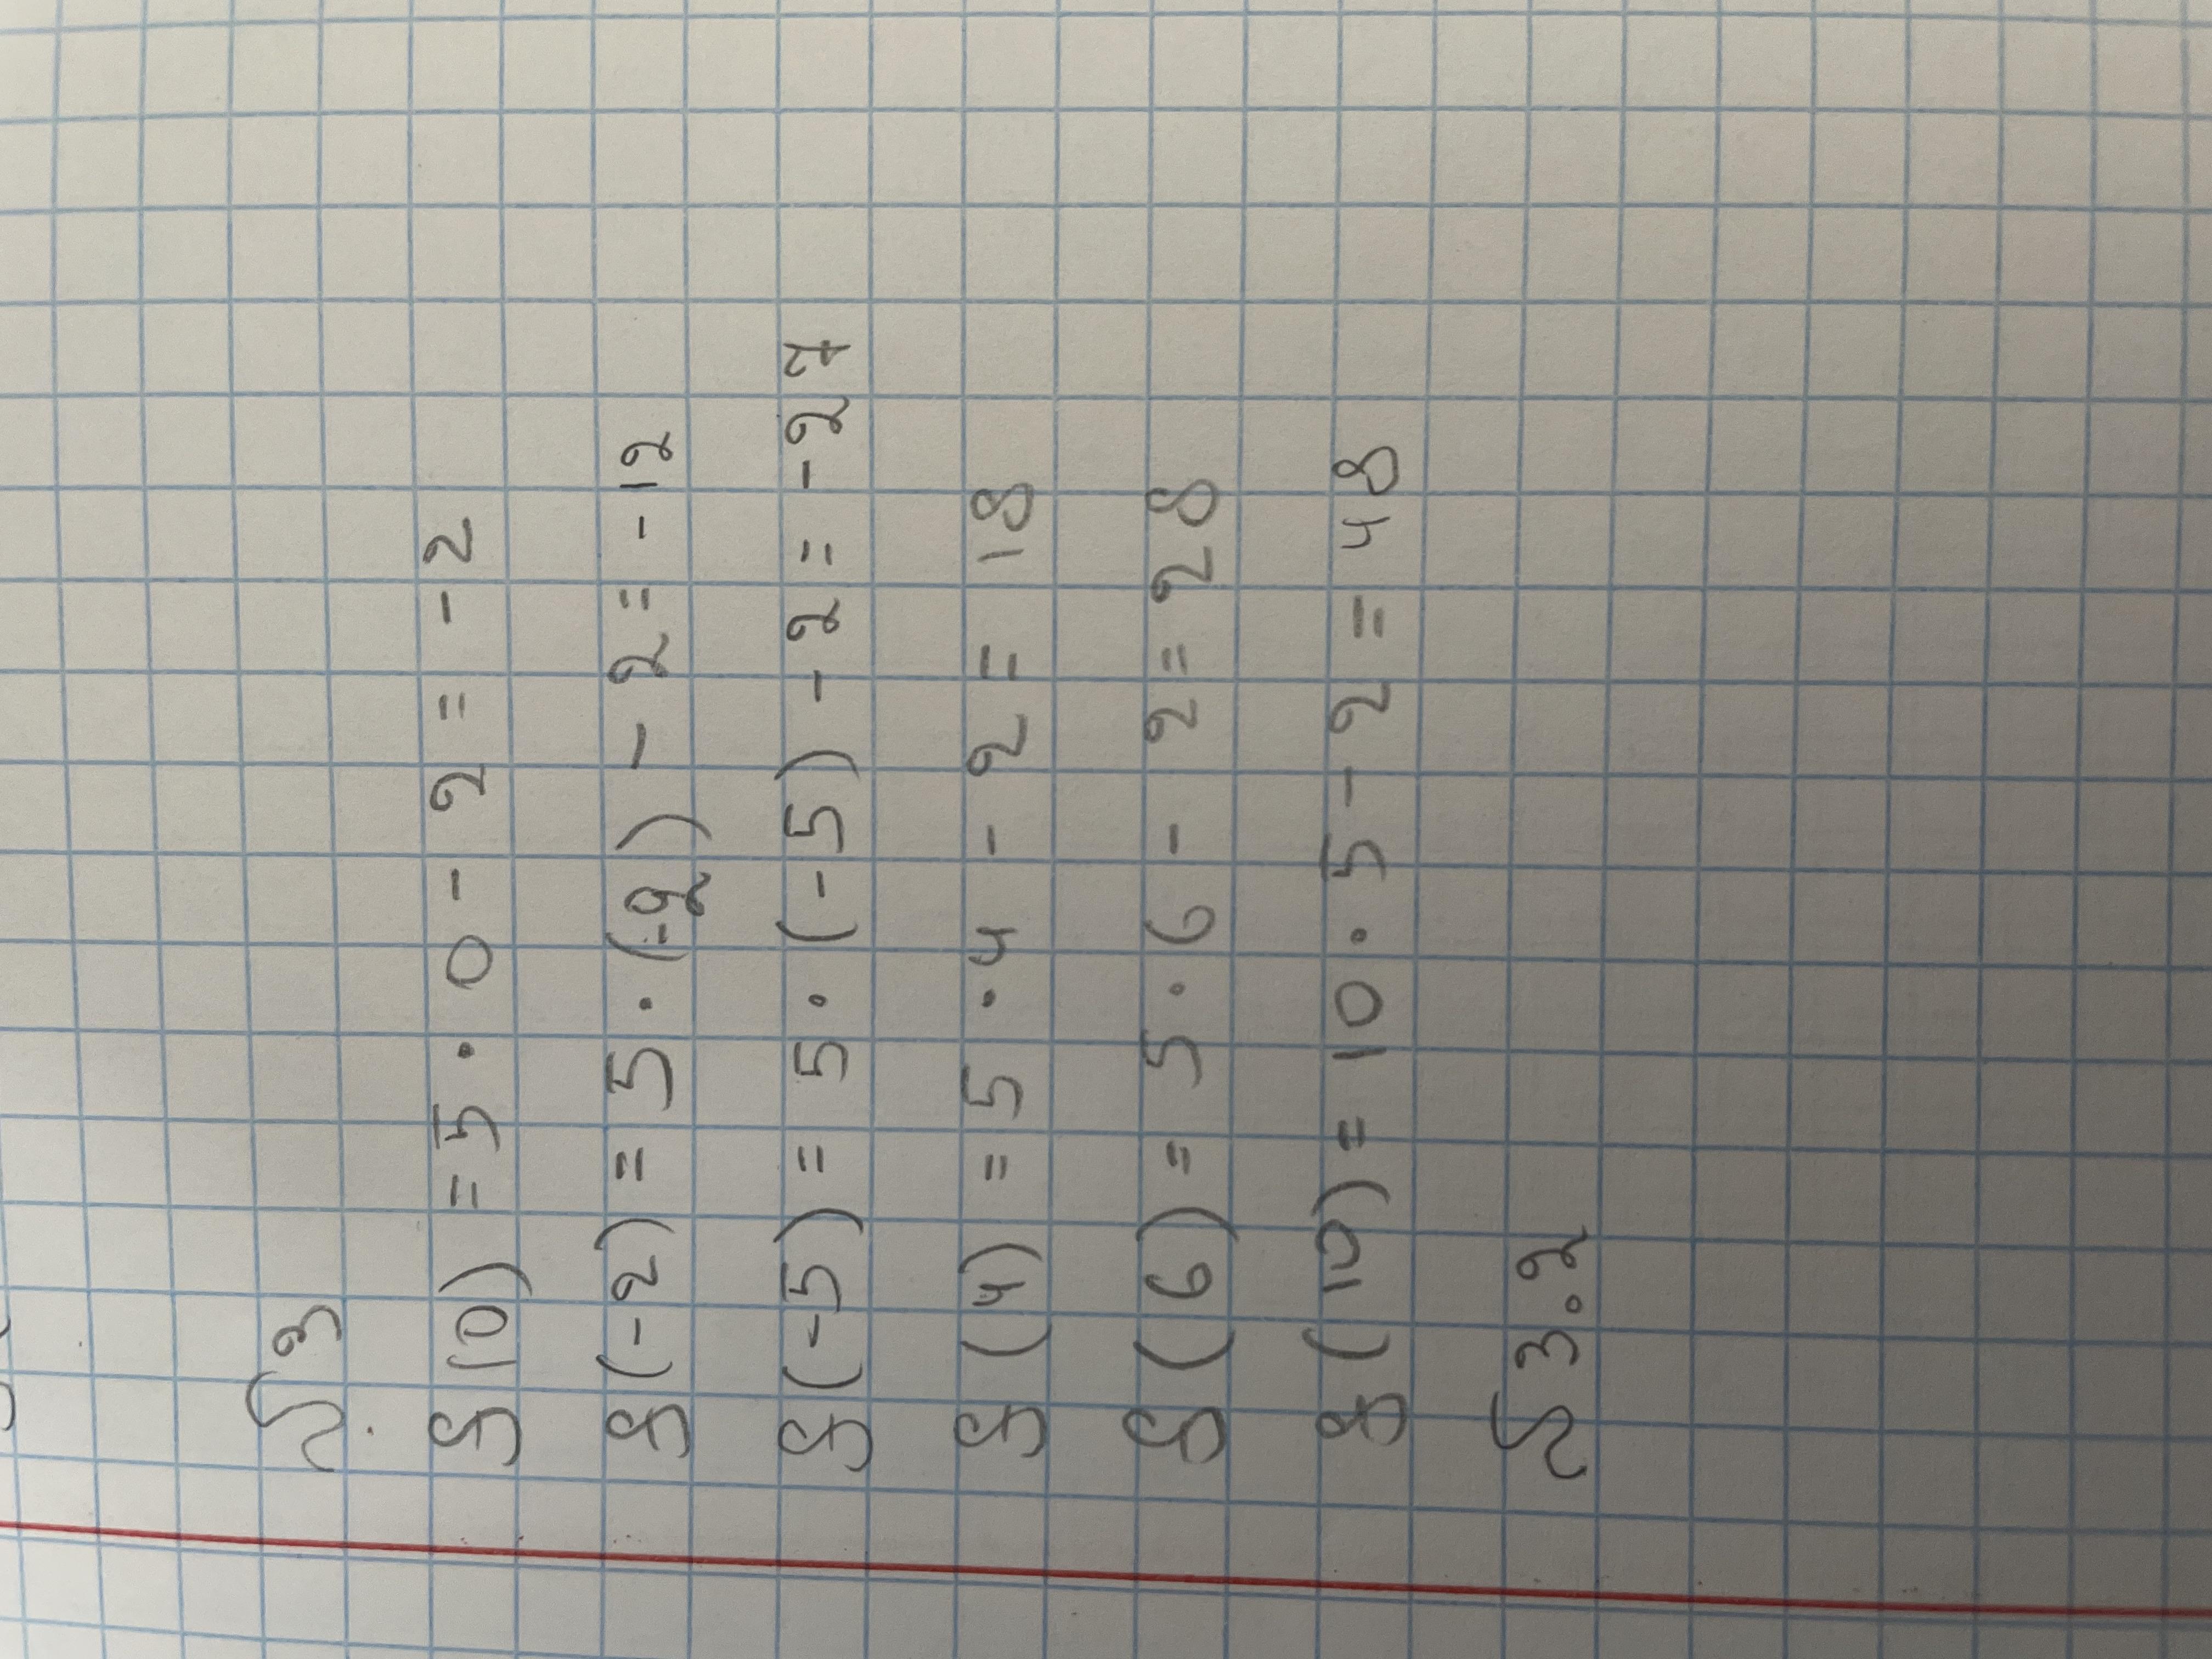 S 3
g(0) = 5 · 0 - 2 = - 2
g(-2) = 5 · (-2) - 2 = - 12
g(-5) = 5 · (-5) - 2 = - 27
g(4) = 5 · 4 - 2 = 18
g(6) = 5 · 6 - 2 = 28
g(10) = 10 · 5 - 2 = 48
S 3.2